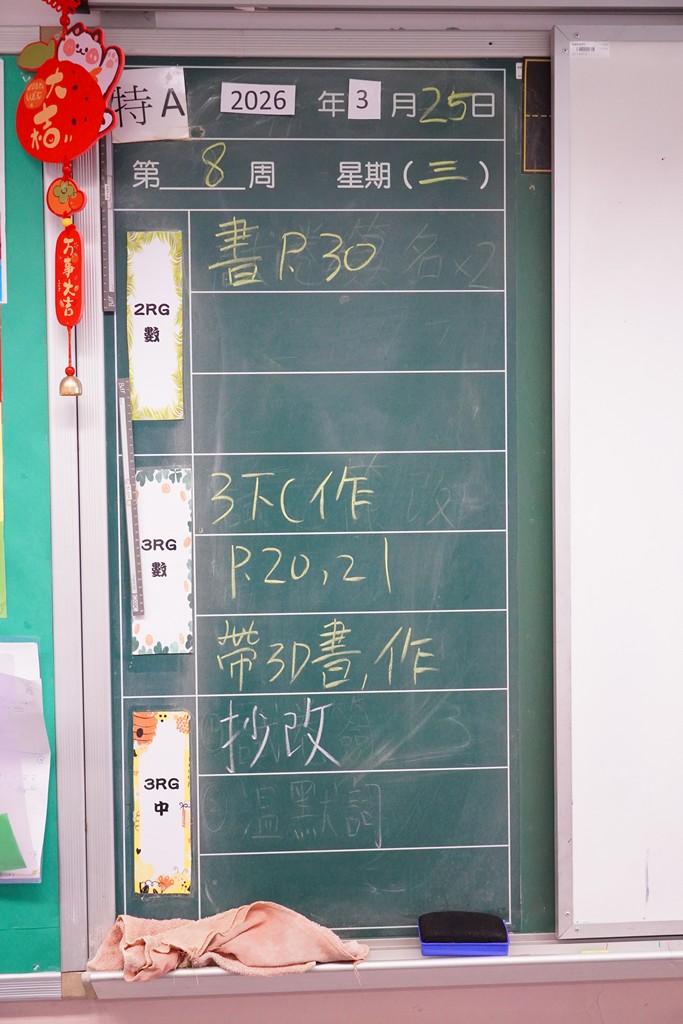 大
桔
萬事大吉
特A
2026 年 3 月 25 日
第 8 周 星期 ( 三 )
2RG
數
書 P.30
3RG
數
3下C 作
P.20,21
帶3D書,作
3RG
中
抄改
溫默詞